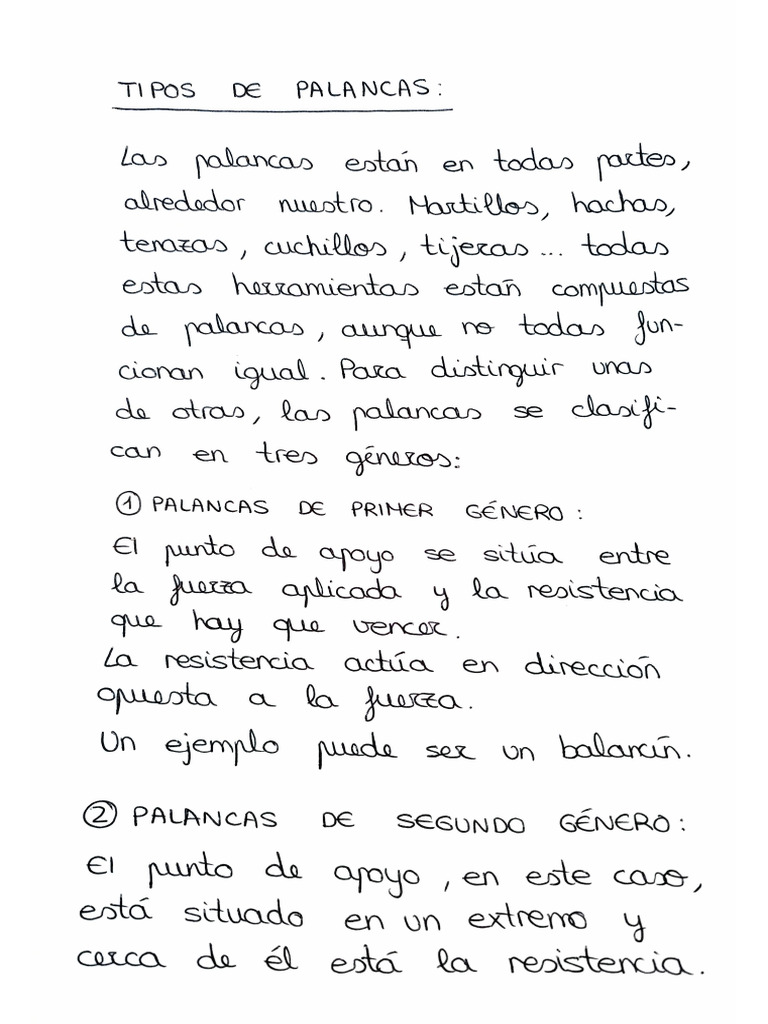 TIPOS DE PALANCAS:
Las palancas están en todas partes,
alrededor nuestro. Martillos, hachas,
tenazas, cuchillos, tijeras... todas
estas herramientas están compuestas
de palancas, aunque no todas fun-
cionan igual. Para distinguir unas
de otras, las palancas se clasifi-
can en tres géneros:
① PALANCAS DE PRIMER GÉNERO:
El punto de apoyo se sitúa entre
la fuerza aplicada y la resistencia
que hay que vencer.
La resistencia actúa en dirección
opuesta a la fuerza.
Un ejemplo puede ser un balancín.
② PALANCAS DE SEGUNDO GÉNERO:
El punto de apoyo, en este caso,
está situado en un extremo y
cerca de él está la resistencia.